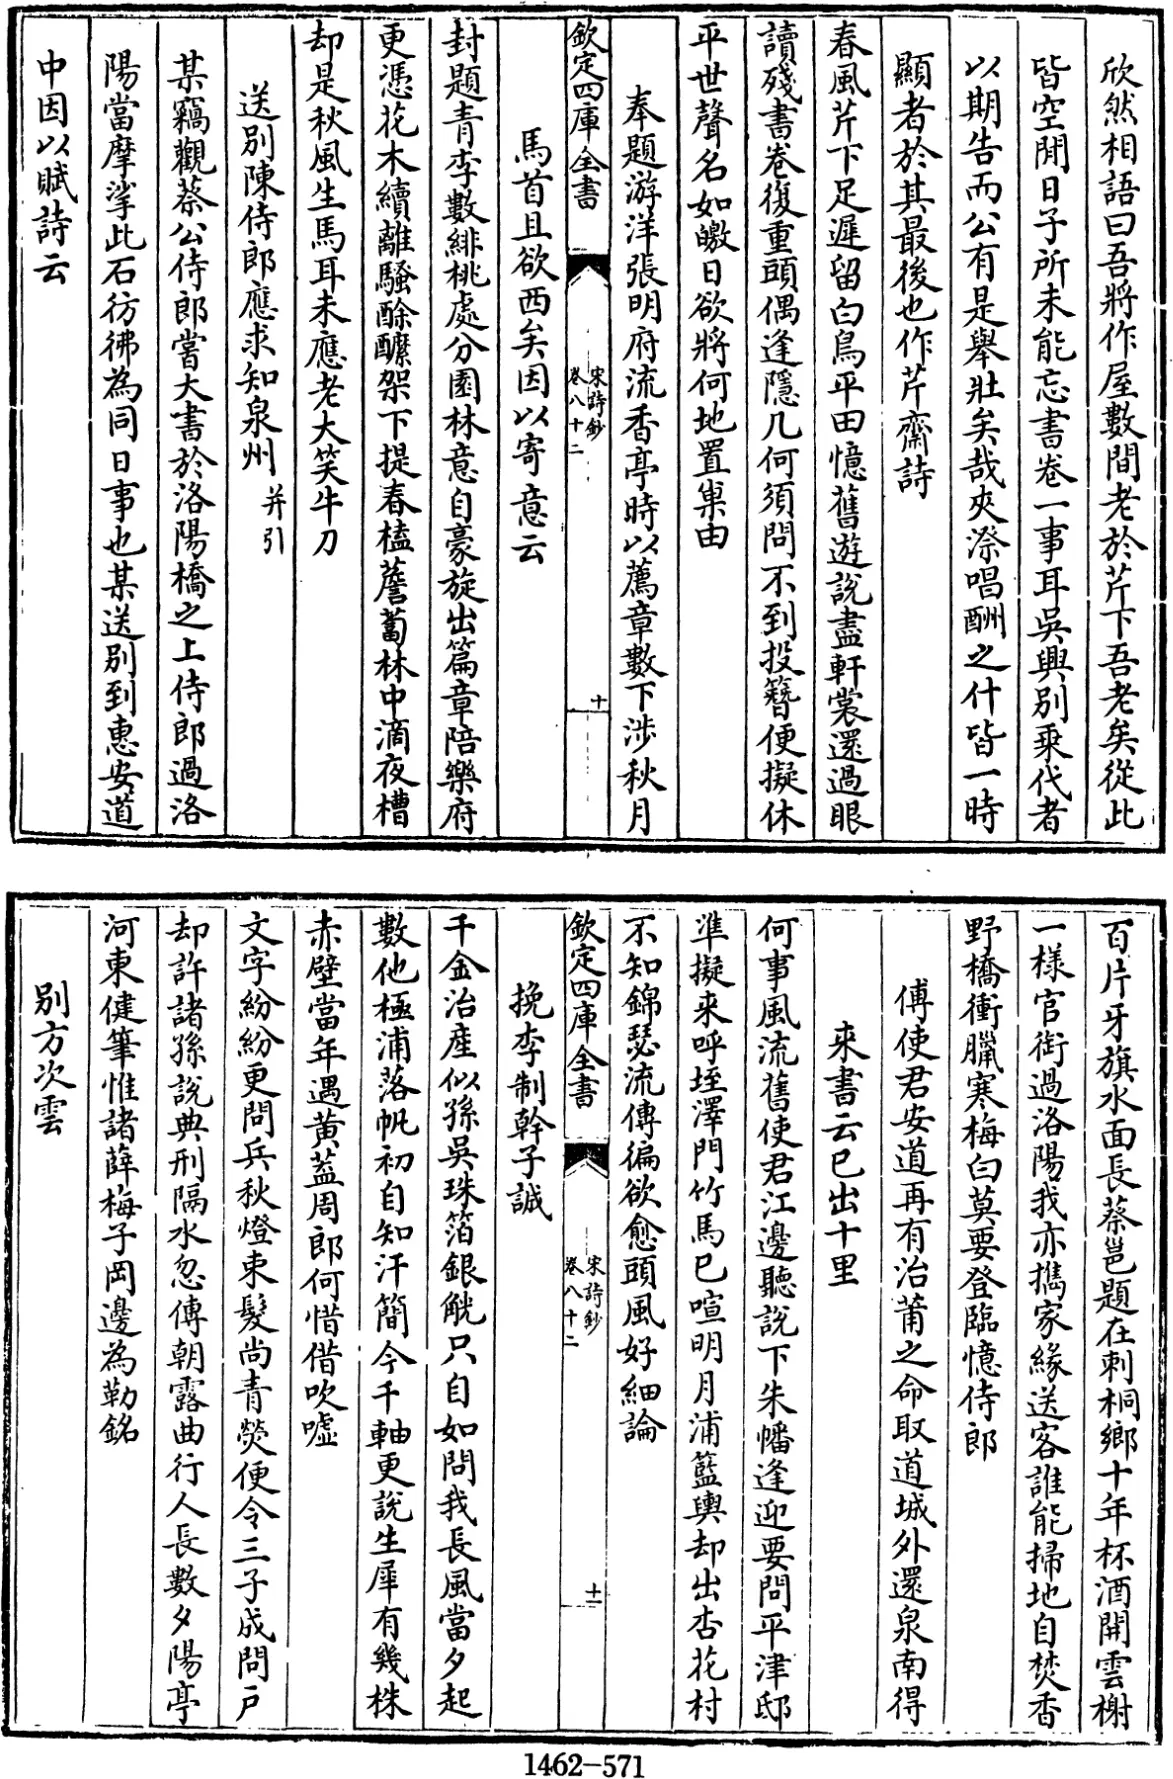 欣然相語曰吾將作屋數間老於芹下吾老矣從此
皆空閒日子所未能忘書卷一事耳吳興別乘代者
以期告而公有是舉壯矣哉夾漈唱酬之什皆一時
顯者於其最後也作芹齋詩
春風芹下足遲留白鳥平田憶舊遊說盡軒裳還過眼
讀殘書卷復重頭偶逢隱几何須問不到投簪便擬休
平世聲名如皦日欲將何地置巢由
奉題游洋張明府流香亭時以薦章數下涉秋月
欽定四庫全書
宋詩鈔
卷八十二
十
馬首且欲西矣因以寄意云
封題青李數緋桃處分園林意自豪旋出篇章陪樂府
更憑花木續離騷酴醿架下提春榼薝蔔林中滴夜槽
却是秋風生馬耳未應老大笑牛刀
送別陳侍郎應求知泉州 并引
某竊觀蔡公侍郎嘗大書於洛陽橋之上侍郎過洛
陽當摩挲此石彷彿為同日事也某送別到惠安道
中因以賦詩云
百片牙旗水面長蔡邕題在刺桐鄉十年杯酒開雲榭
一樣官銜過洛陽我亦攜家緣送客誰能掃地自焚香
野橋衝臘寒梅白莫要登臨憶侍郎
傅使君安道再有治莆之命取道城外還泉南得
来書云已出十里
何事風流舊使君江邊聽說下朱幡逢迎要問平津邸
準擬来呼垤澤門竹馬已喧明月浦籃輿却出杏花村
不知錦瑟流傳徧欲愈頭風好細論
欽定四庫全書
宋詩鈔
卷八十二
十一
挽李制幹子誠
千金治産似孫吳珠箔銀觥只自如問我長風當夕起
數他極浦落帆初自知汗簡今千軸更說生犀有幾株
赤壁當年遇黃蓋周郎何惜借吹噓
文字紛紛更問兵秋燈束髮尚青熒便令三子成問戶
却許諸孫說典刑隔水忽傳朝露曲行人長數夕陽亭
河東健筆惟諸薛梅子岡邊為勒銘
別方次雲
1462-571